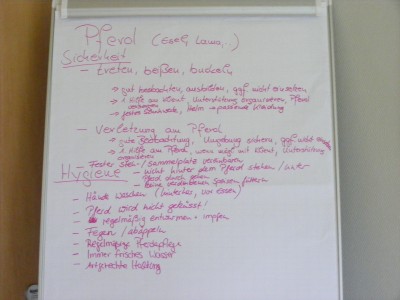 Pferd (Esel, Lama,...)
Sicherheit
- treten, beißen, buckeln
→ gut beobachten, ausbilden, ggf. nicht einsetzen
→ 1. Hilfe am Klient, Unterstützung organisieren, Pferd
→ festes Schuhwerk, Helm → passende Kleidung
- Verletzung am Pferd
→ gute Beobachtung, Umgebung sichern, ggf. nicht
→ 1. Hilfe am Pferd, wenn mögl. mit Klient, Unterstützung
organisieren
- Fester Steh-/Sammelplatz vereinbaren
- nicht hinter dem Pferd stehen / unter
Pferd durch gehen
- keine verdorbenen Speisen füttern
Hygiene
- Hände waschen (hinterher, vor Essen)
- Pferd wird nicht geküsst!
- regelmäßig entwurmen + impfen
- Fegen / abäppeln
- Regelmäßige Pferdepflege
- Immer frisches Wasser
- Artgerechte Haltung